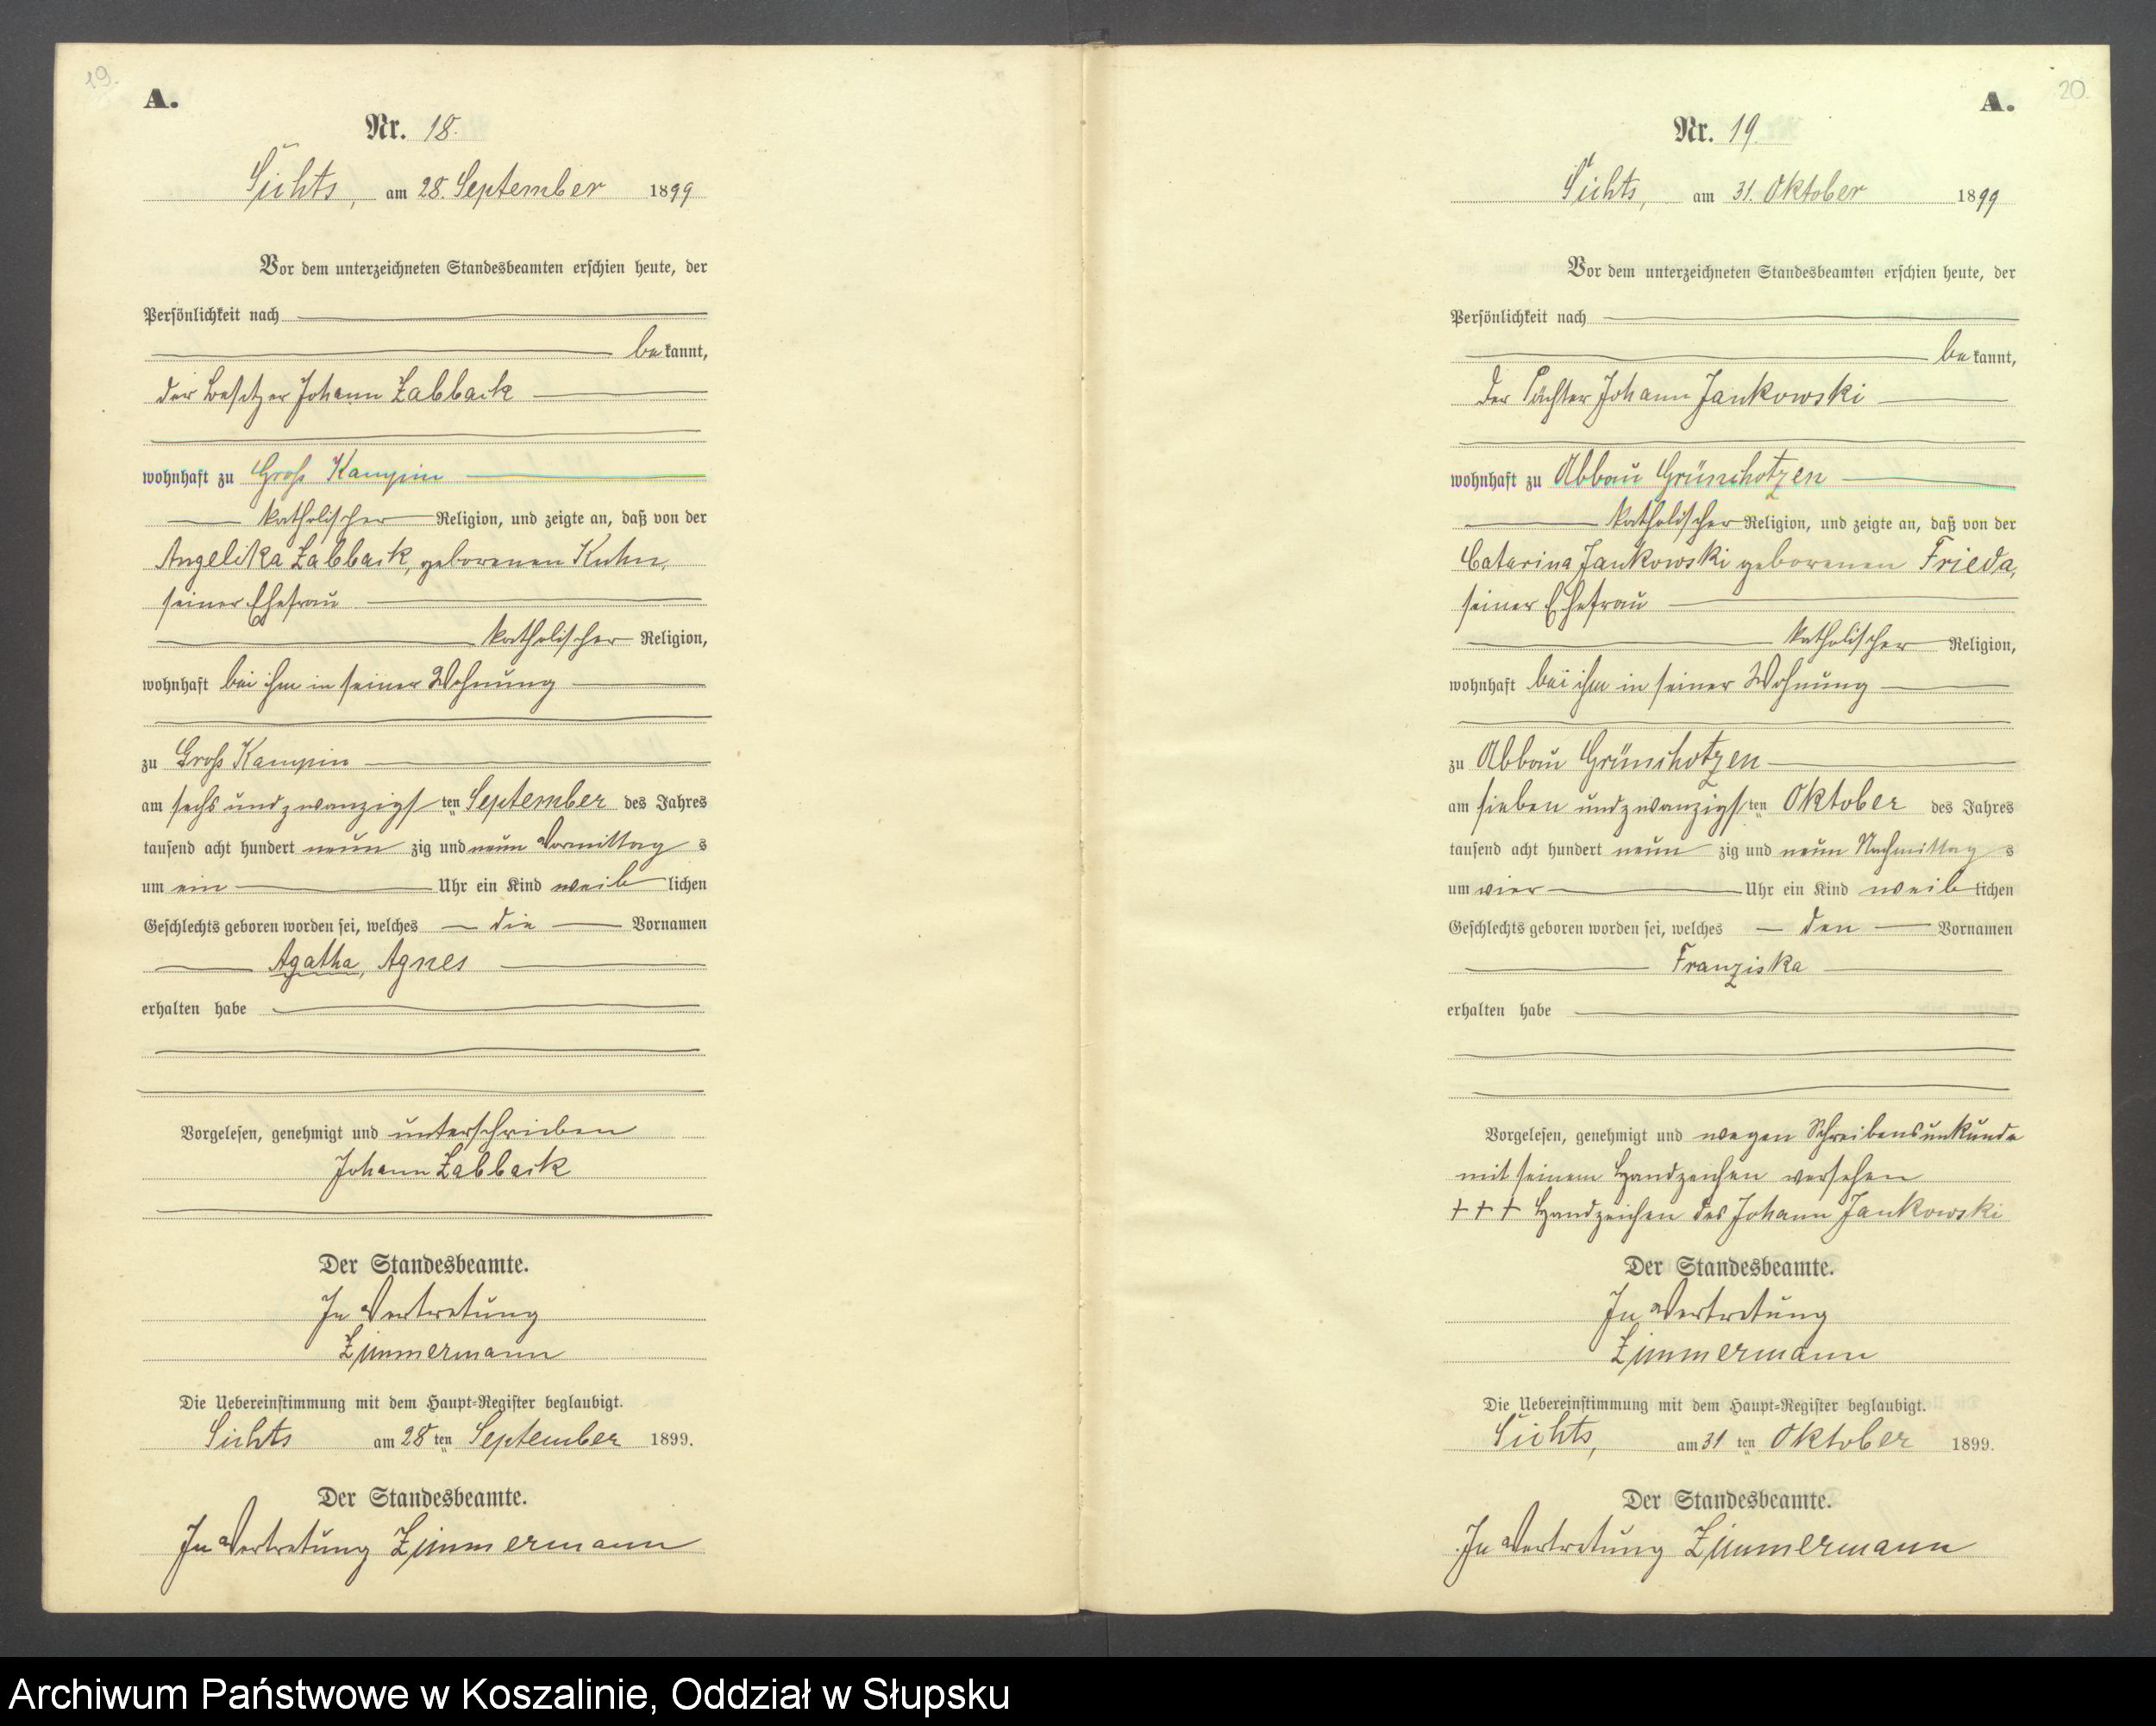 19.
A.
Nr. 18.
Sichts, am 28. September 1899
Vor dem unterzeichneten Standesbeamten erschien heute, der
Persönlichkeit nach
bekannt,
der Besitzer Johann Zabback
wohnhaft zu Groß Kampin
katholischer Religion, und zeigte an, daß von der
Angelika Zabback, geborenen Kuhn,
seiner Ehefrau
katholischer Religion,
wohnhaft bei ihm in seiner Wohnung
zu Groß Kampin
am sechs und zwanzigsten September des Jahres
tausend acht hundert neunzig und neun Vormittags
um ein Uhr ein Kind weiblichen
Geschlechts geboren worden sei, welches die Vornamen
Agatha, Agnes
erhalten habe
Vorgelesen, genehmigt und unterschrieben
Johann Zabback
Der Standesbeamte.
In Vertretung
Zimmermann
Die Uebereinstimmung mit dem Haupt-Register beglaubigt.
Sichts am 28ten September 1899.
Der Standesbeamte.
In Vertretung Zimmermann
20.
A.
Nr. 19.
Sichts, am 31. Oktober 1899
Vor dem unterzeichneten Standesbeamten erschien heute, der
Persönlichkeit nach
bekannt,
der Pächter Johann Jankowski
wohnhaft zu Abbau Grünchotzen
katholischer Religion, und zeigte an, daß von der
Catarina Jankowski geborenen Frieda,
seiner Ehefrau
katholischer Religion,
wohnhaft bei ihm in seiner Wohnung
zu Abbau Grünchotzen
am sieben und zwanzigsten Oktober des Jahres
tausend acht hundert neunzig und neun Nachmittags
um vier Uhr ein Kind weiblichen
Geschlechts geboren worden sei, welches den Vornamen
Franziska
erhalten habe
Vorgelesen, genehmigt und wegen Schreibensunkunde
mit seinem Handzeichen versehen
+ + + Handzeichen des Johann Jankowski
Der Standesbeamte.
In Vertretung
Zimmermann
Die Uebereinstimmung mit dem Haupt-Register beglaubigt.
Sichts, am 31ten Oktober 1899.
Der Standesbeamte.
In Vertretung Zimmermann
Archiwum Państwowe w Koszalinie, Oddział w Słupsku